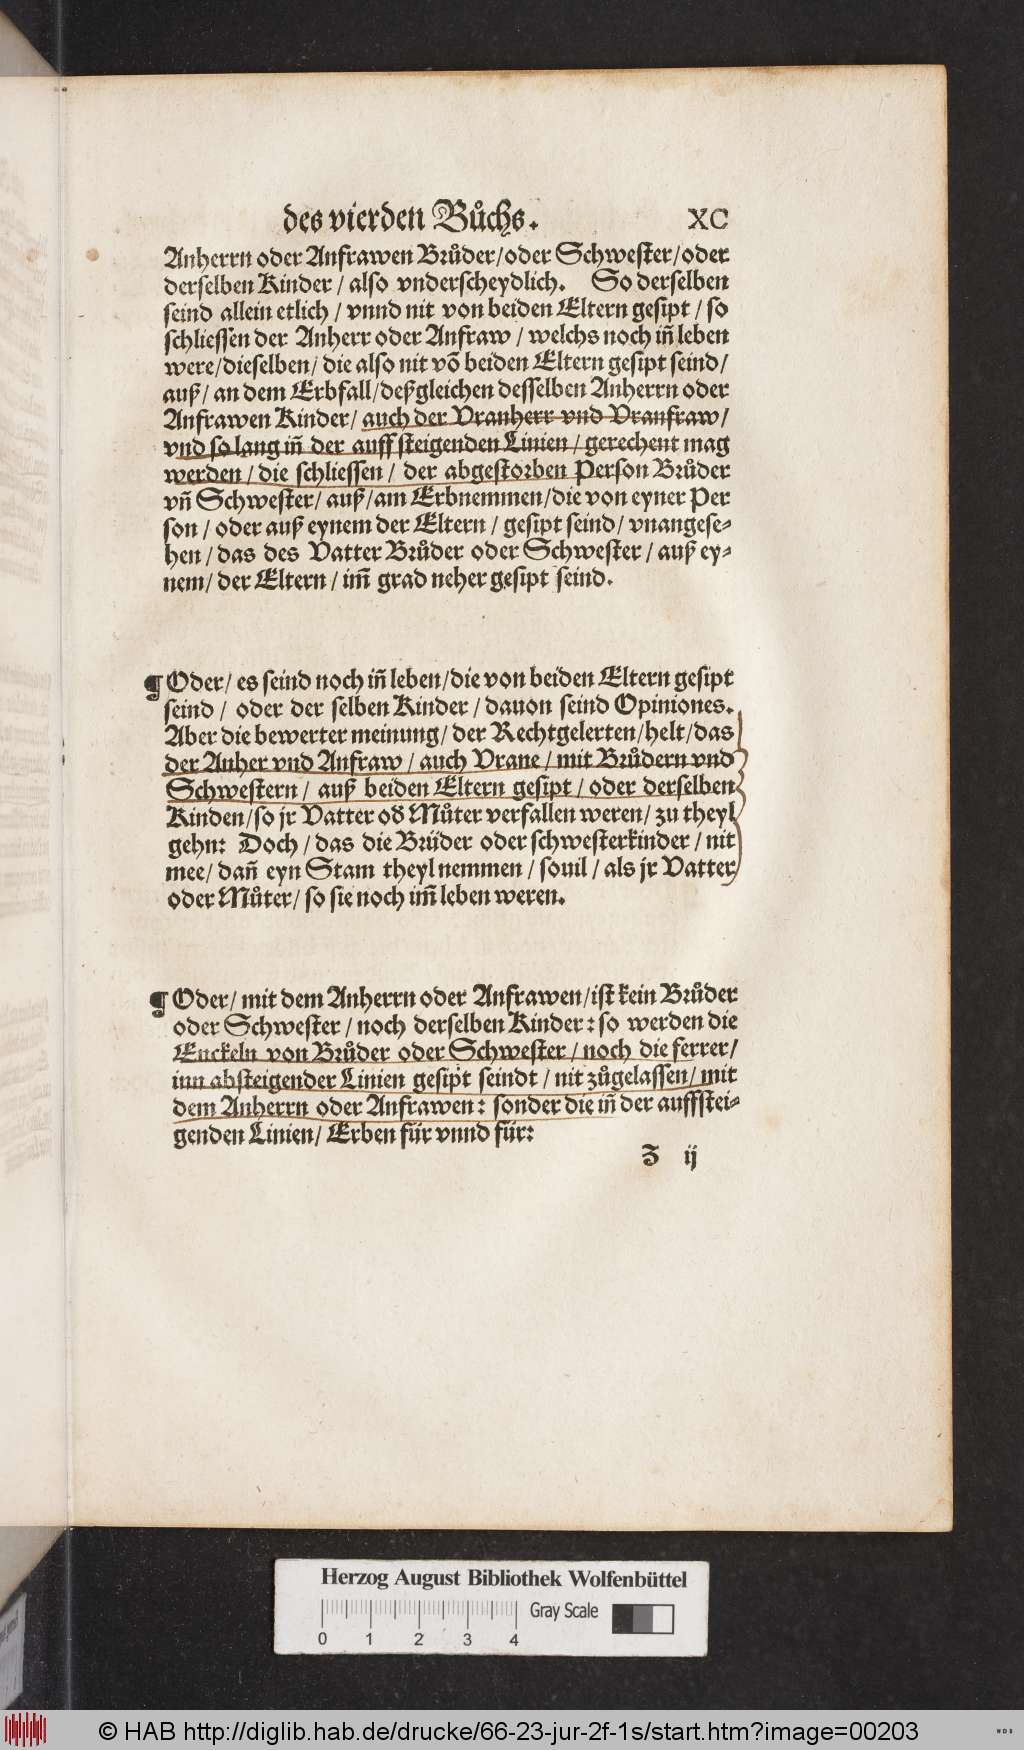 des vierden Bůchs.
XC
Anherrn oder Anfrawen Brůder/oder Schwester/oder
derselben Kinder / also vnderscheydlich. So derselben
seind allein etlich / vnnd nit von beiden Eltern gesipt / so
schliessen der Anherr oder Anfraw / welchs noch iñ leben
were/dieselben/ die also nit võ beiden Eltern gesipt seind/
auß/ an dem Erbfall/deßgleichen desselben Anherrn oder
Anfrawen Kinder/ auch der Vranherr vnd Vranfraw/
vnd so lang iñ der auffsteigenden Linien/ gerechent mag
werden / die schliessen / der abgestorben Person Brůder
vñ Schwester/ auß/am Erbnemmen/die von eyner Per
son / oder auß eynem der Eltern / gesipt seind/ vnangese-
hen / das des Vatter Brůder oder Schwester / auß ey-
nem/ der Eltern / im̃ grad neher gesipt seind.
¶ Oder/ es seind noch iñ leben/die von beiden Eltern gesipt
seind / oder der selben Kinder / dauon seind Opiniones.
Aber die bewerter meinung/ der Rechtgelerten/helt/das
der Anher vnd Anfraw / auch Vrane / mit Brůdern vnd
Schwestern / auß beiden Eltern gesipt / oder derselben
Kinden/so jr Vatter oď Můter verfallen weren/ zu theyl
gehn: Doch / das die Brüder oder schwesterkinder / nit
mee/ dañ eyn Stam theyl nemmen / souil / als jr Vatter
oder Můter/ so sie noch im̃ leben weren.
¶ Oder/ mit dem Anherrn oder Anfrawen/ist kein Brůder
oder Schwester / noch derselben Kinder: so werden die
Enckeln von Brůder oder Schwester / noch die ferrer/
inn absteigender Linien gesipt seindt / nit zůgelassen/ mit
dem Anherrn oder Anfrawen: sonder die iñ der auffstei-
genden Linien/ Erben für vnnd für:
Z ij
Herzog August Bibliothek Wolfenbüttel
Gray Scale
0 1 2 3 4
© HAB http://diglib.hab.de/drucke/66-23-jur-2f-1s/start.htm?image=00203
WDB